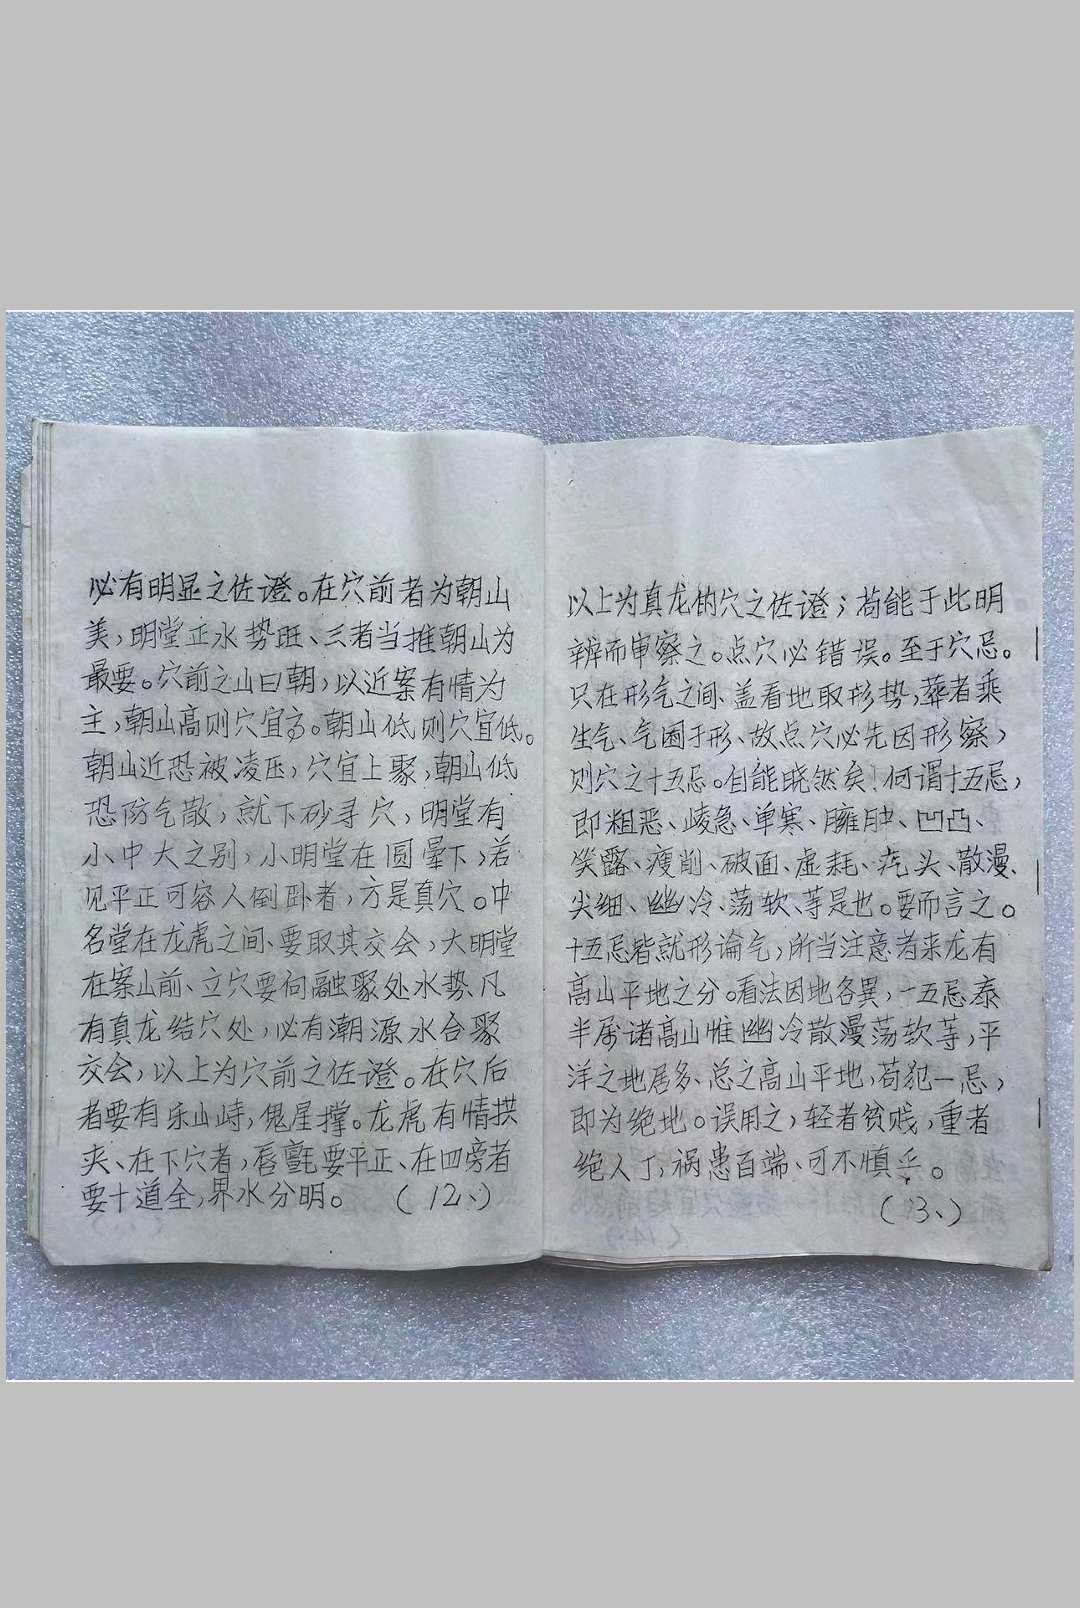 必有明显之佐證。在穴前者为朝山
美，明堂正水势旺、三者当推朝山为
最要。穴前之山曰朝，以近案有情为
主，朝山高则穴宜高。朝山低则穴宜低。
朝山近恐被凌压，穴宜上聚，朝山低
恐防气散，就下砂寻穴，明堂有
小中大之别，小明堂在圆晕下，若
见平正可容人倒卧者，方是真穴。中
名堂在龙虎之间、要取其交会，大明堂
在案山前、立穴要向融聚处水势、凡
有真龙结穴处，必有潮源水合聚
交会，以上为穴前之佐證。在穴后
者要有乐山峙，鬼星撑。龙虎有情拱
夹、在下穴者，唇氈要平正、在四旁者
要十道全，界水分明。（12、）
以上为真龙的穴之佐證；苟能于此明
辨而审察之。点穴必错误。至于穴忌。
只在形气之间、盖看地取形势，葬者乘
生气、气囿于形、故点穴必先因形察，
则穴之十五忌。自能晓然矣！何谓十五忌，
即粗恶、崚急、单寒、臃肿、凹凸、
突露、瘦削、破面、虚耗、疙头、散漫、
尖细、幽冷、荡软、等是也。要而言之。
十五忌皆就形论气，所当注意者来龙有
高山平地之分。看法因地各異，十五忌泰
半属诸高山惟幽冷散漫荡软等，平
洋之地居多、总之高山平地，苟犯一忌，
即为绝地。误用之，轻者贫贱，重者
绝人丁，祸患百端、可不慎乎。
（13、）